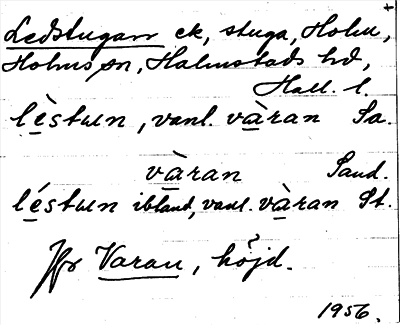 Ledstugan ek, stuga, Holm,
Holms sn, Halmstads hd,
Hall. l.
lèstɯn, vanl. vàran Sa.
vàran Sand.
léstɯn ibland, vanl. vàran St.
Jfr Varan, höjd.
1956.